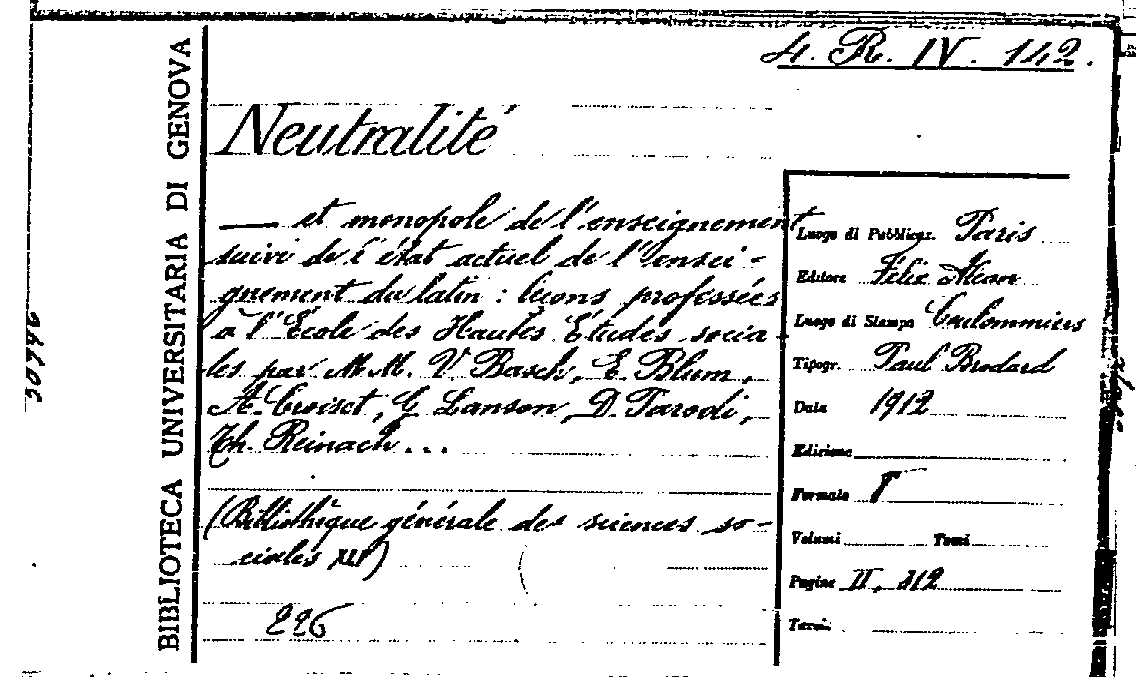 4. R. IV. 142.
BIBLIOTECA UNIVERSITARIA DI GENOVA
Neutralité
— et monopole de l'enseignement
suivi de l'état actuel de l'ensei-
gnement du latin : leçons professées
à l'École des Hautes Études socia-
les par M.M. V. Basch, E. Blum,
A. Croiset, G. Lanson, D. Parodi,
Th. Reinach...
(Bibliothèque générale des sciences so-
ciales XLI)
226
Luogo di Pubblicaz. Paris
Editore Félix Alcan
Luogo di Stampa Coulommiers
Tipogr. Paul Brodard
Data 1912
Edizione
Formato 8
Volumi Tomi
Pagine II, 312
Tavol.